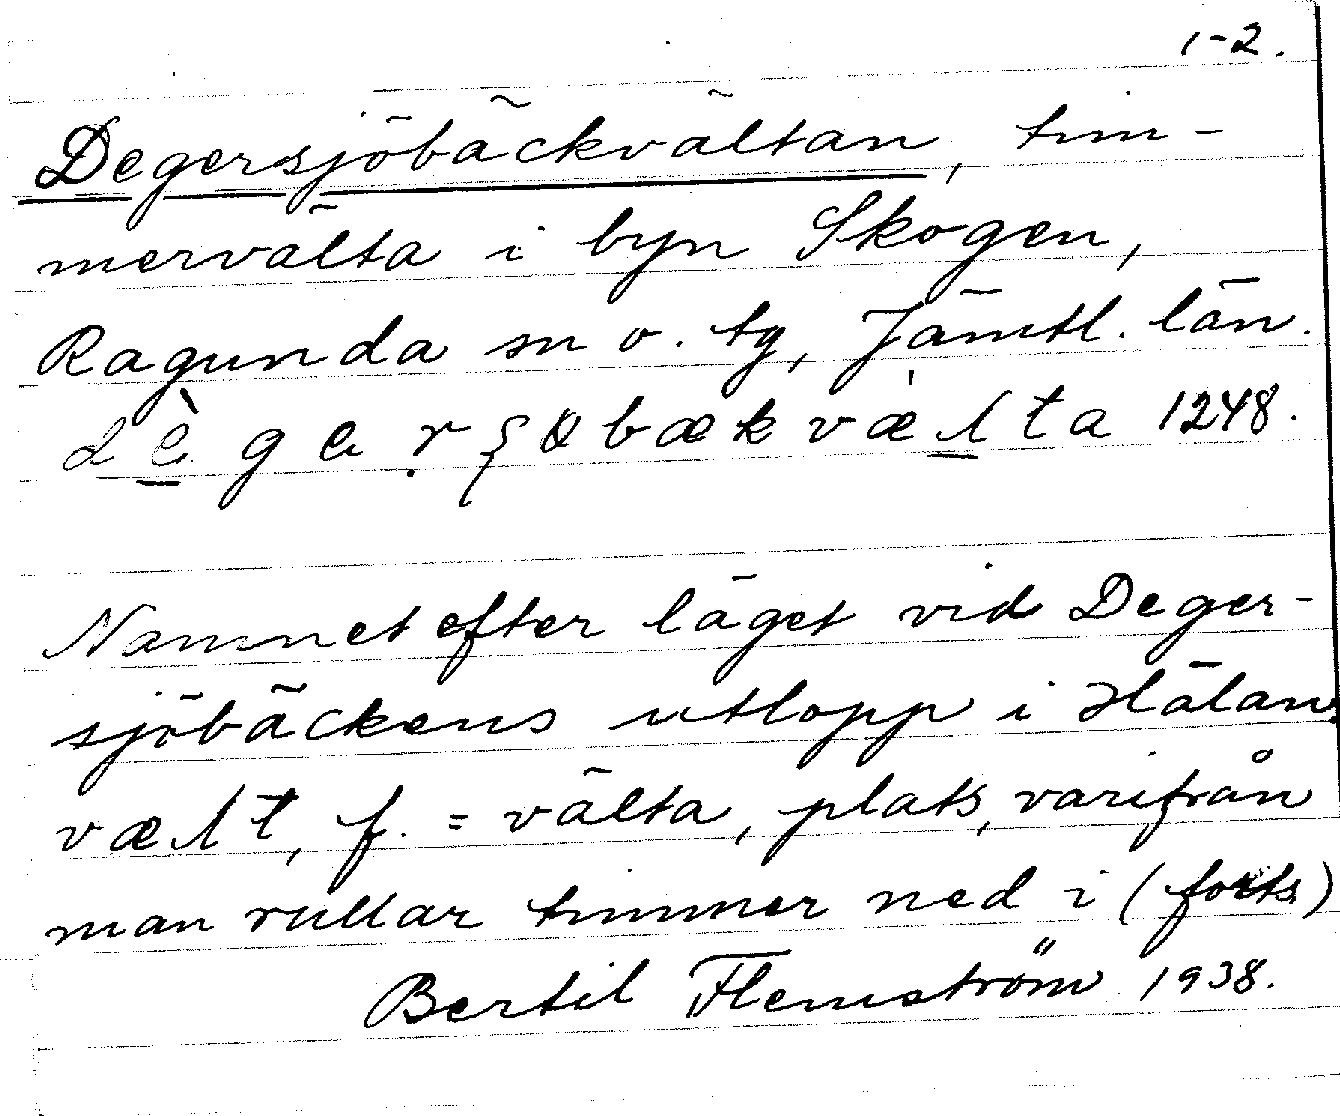 1-2.
Degersjöbäckvältan, tim-
mervälta i byn Skogen,
Ragunda sn o. tg, Jämtl. län.
1248.
Namnet efter läget vid Deger-
sjöbäckens utlopp i Hälån.
f. = välta, plats, varifrån
man rullar timmer ned i (forts)
Bertil Flemström 1938.